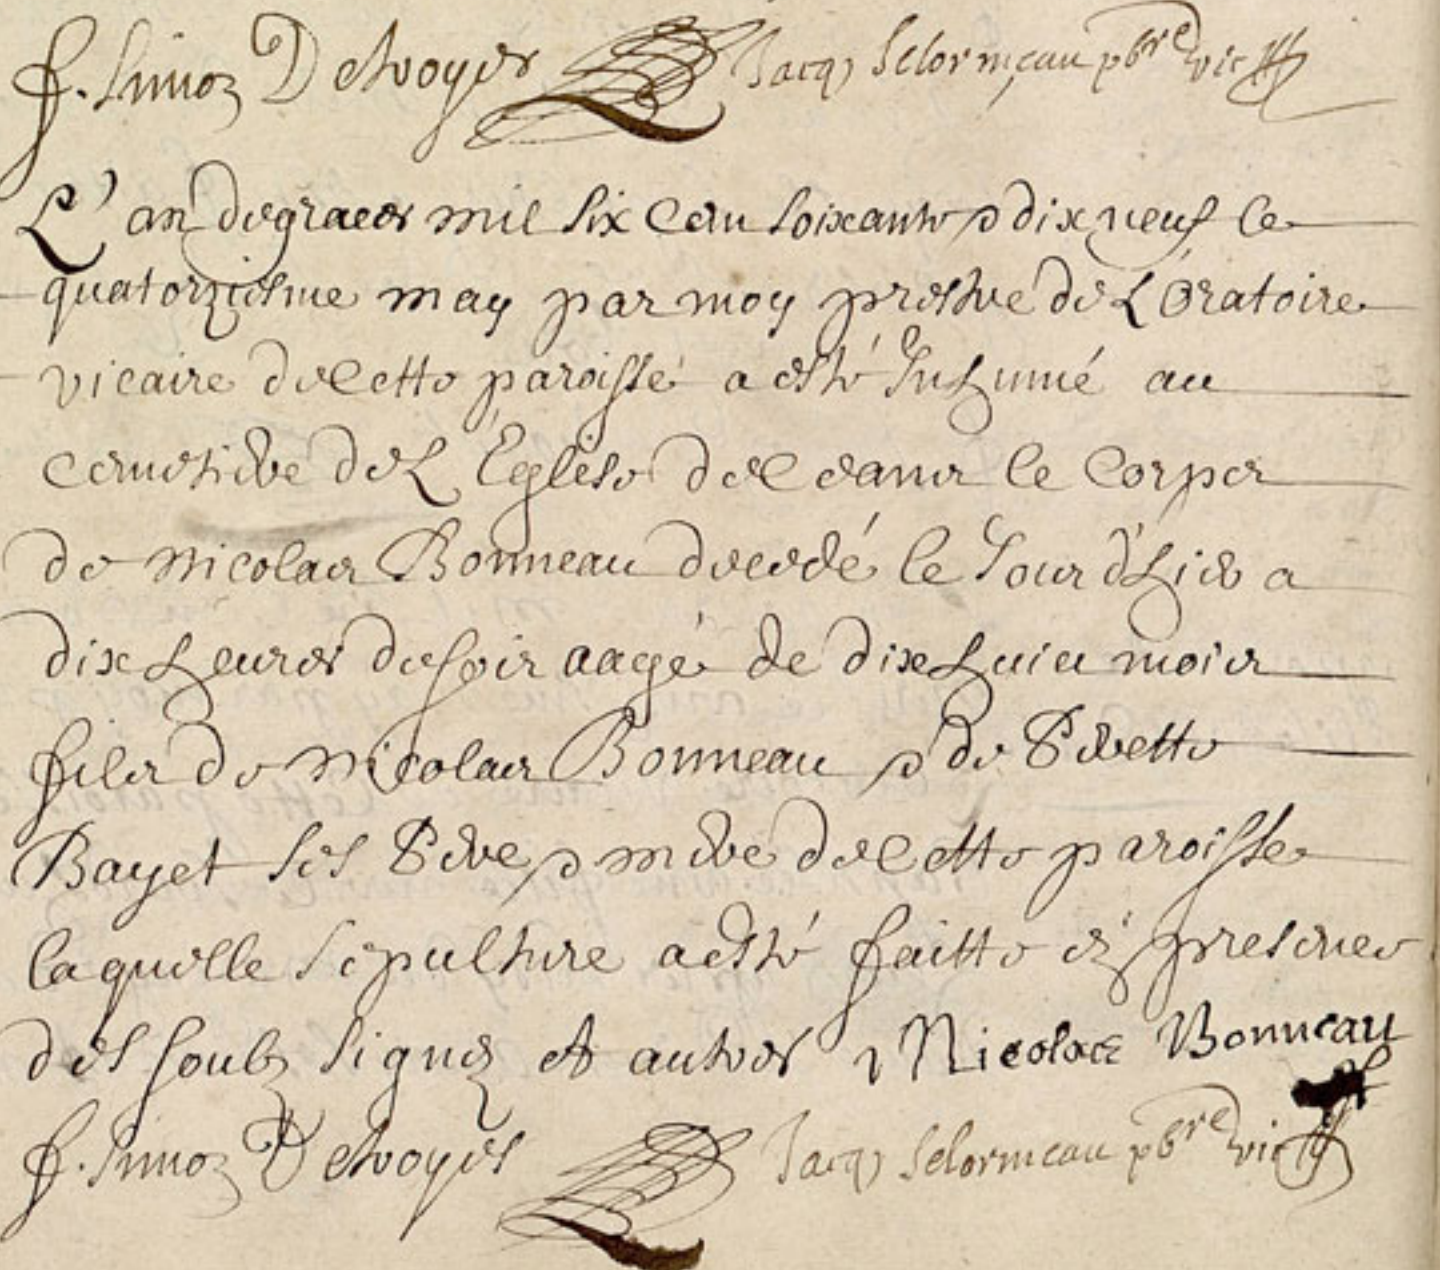 f. Simon Detroyes Jacq Selormeau pbre vic
L'an de grace mil six cent soixante & dix neuf le
quatorziesme may par moy prestre de L'Oratoire
vicaire de cette paroisse a esté Inhumé au
cemetiere de L'Eglise de ceans le Corps
de Nicolas Bonneau decedé le Jour d'hier a
dix heures de soir aagé de dix huict mois
fils de Nicolas Bonneau & de Perette
Bayet ses Pere & mere de cette paroisse
laquelle sepulture a esté faitte en presence
des soubz signez et autres Nicolas Bonneau
f. Simon Detroyes Jacq Selormeau pbre vic